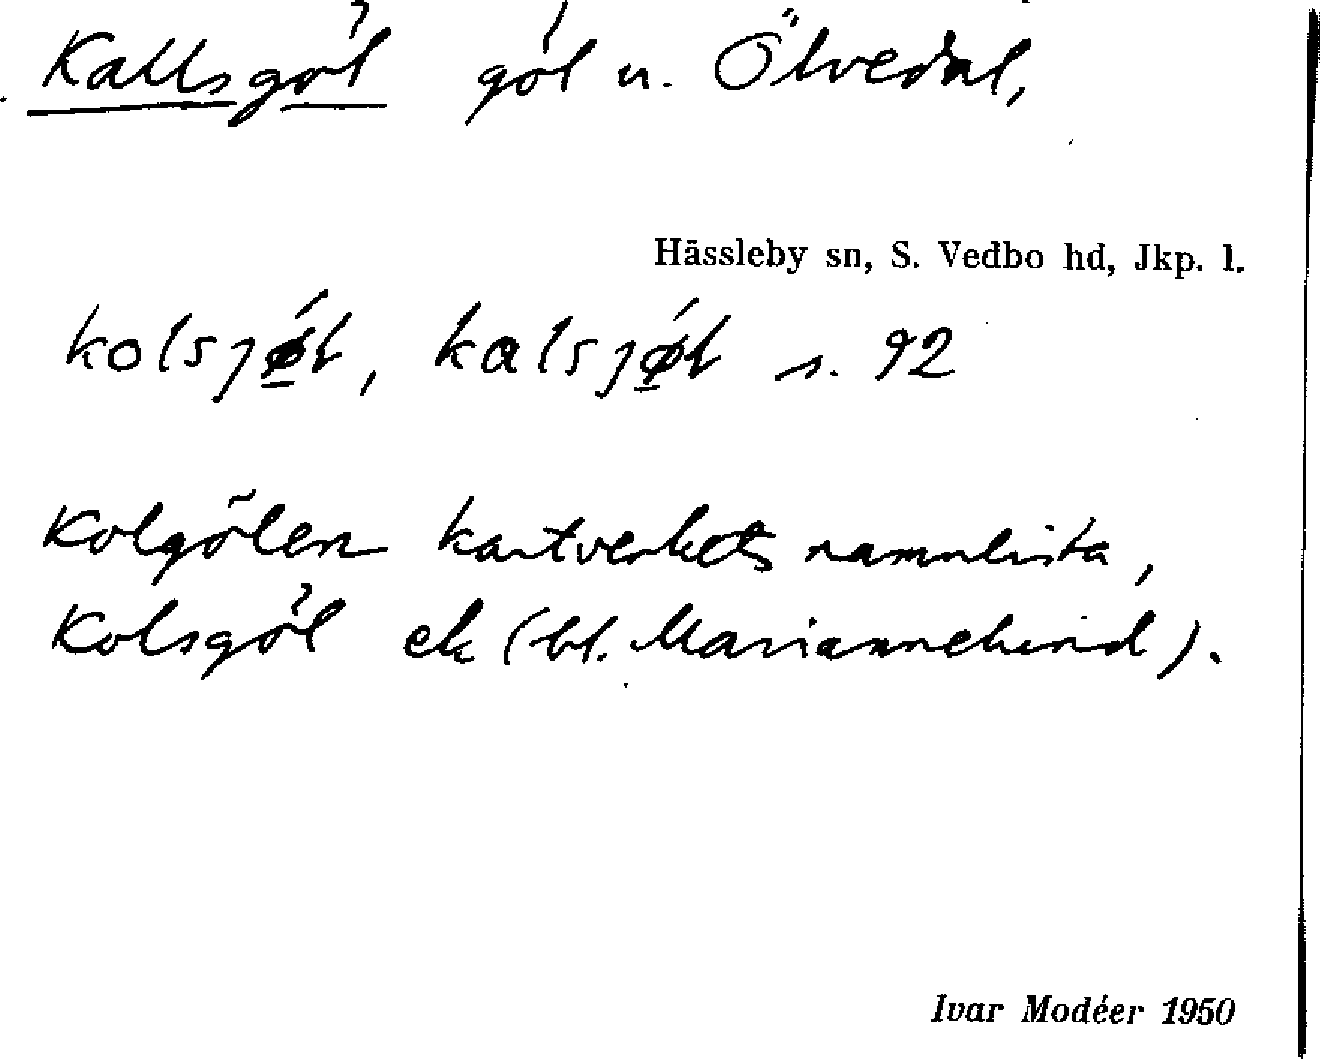 Kallsgöl göl u. Ölvedal,
Hässleby sn, S. Vedbo hd, Jkp. l.
kolsjǿ̱l, kalsjǿ̱l s. 92
Kolgölen kartverkets namnlista,
Kolsgöl ek (bl. Mariannelund).
Ivar Modéer 1950